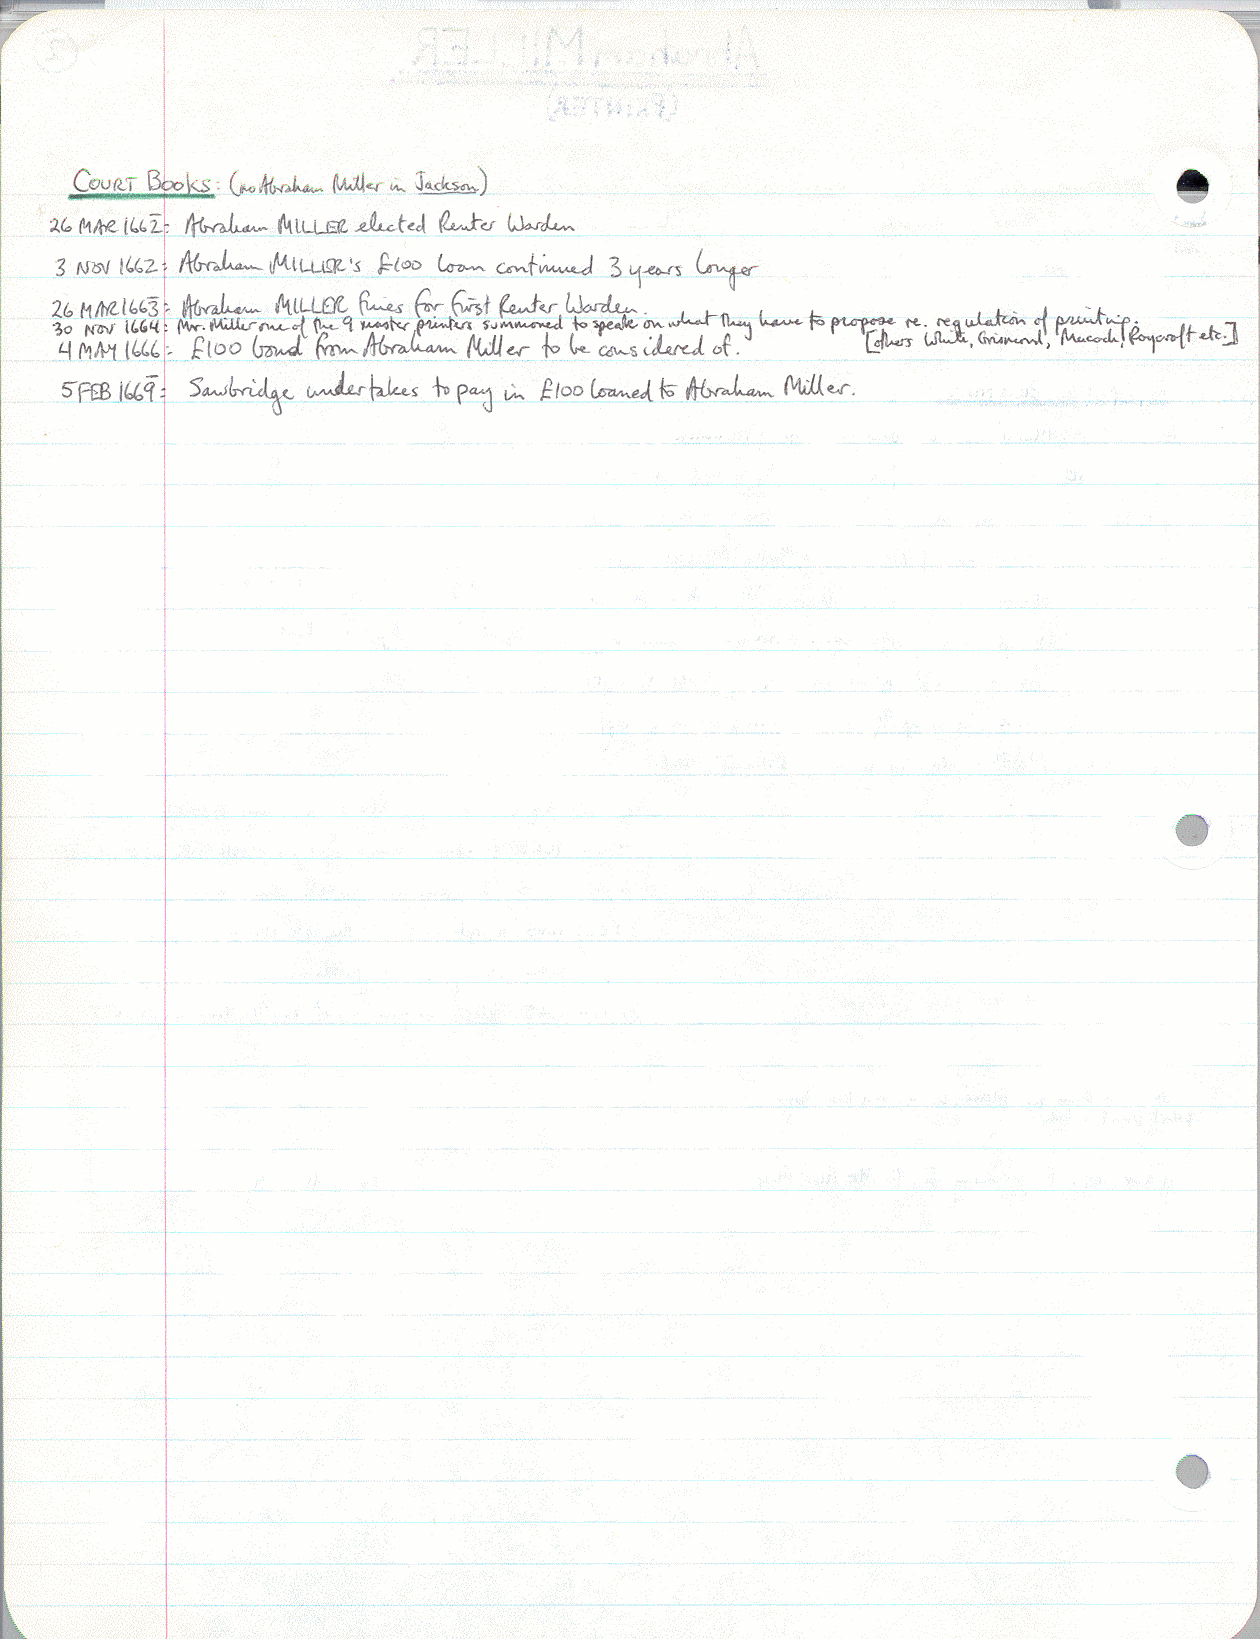 COURT BOOKS: (no Abraham Miller in Jackson)
26 MAR 1662̄: Abraham MILLER elected Renter Warden
3 NOV 1662: Abraham MILLER's £100 loan continued 3 years longer
26 MAR 1663̄: Abraham MILLER fines for first Renter Warden.
30 NOV 1664: Mr. Miller one of the 9 master printers summoned to speak on what they have to propose re. regulation of printing.
[others White, Grismond, Macock, Roycroft etc.]
4 MAY 1666: £100 bond from Abraham Miller to be considered of.
5 FEB 1669̄: Sawbridge undertakes to pay in £100 loaned to Abraham Miller.